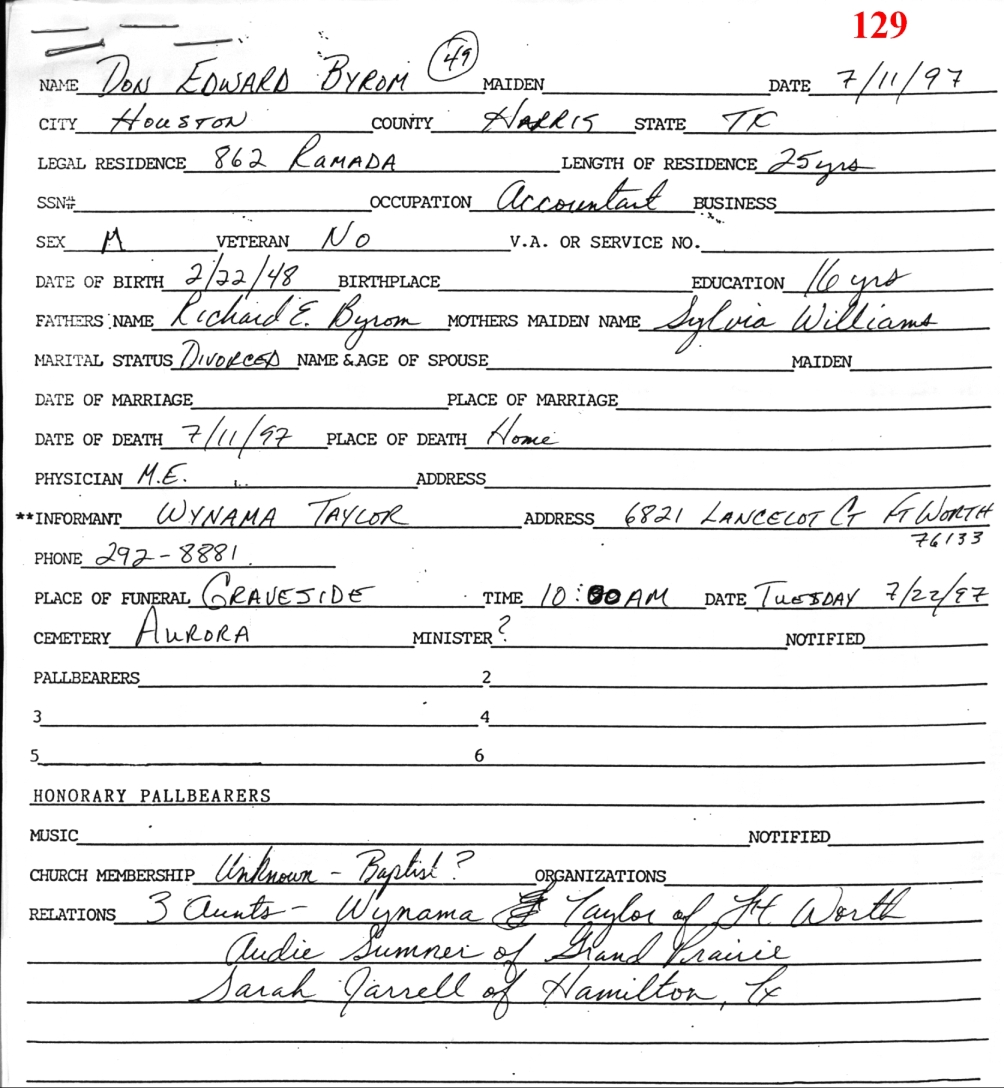 129
NAME DON EDWARD BYROM 49 MAIDEN DATE 7/11/97
CITY HOUSTON COUNTY HARRIS STATE TX
LEGAL RESIDENCE 862 RAMADA LENGTH OF RESIDENCE 25 yrs
SSN# OCCUPATION Accountant BUSINESS
SEX M VETERAN No V.A. OR SERVICE NO.
DATE OF BIRTH 2/22/48 BIRTHPLACE EDUCATION 16 yrs
FATHERS NAME Richard E. Byrom MOTHERS MAIDEN NAME Sylvia Williams
MARITAL STATUS DIVORCED NAME & AGE OF SPOUSE MAIDEN
DATE OF MARRIAGE PLACE OF MARRIAGE
DATE OF DEATH 7/11/97 PLACE OF DEATH Home
PHYSICIAN M.E. ADDRESS
**INFORMANT WYNAMA TAYLOR ADDRESS 6821 LANCELOT CT FT WORTH
76133
PHONE 292-8881
PLACE OF FUNERAL GRAVESIDE TIME 10:00 AM DATE TUESDAY 7/22/97
CEMETERY AURORA MINISTER ? NOTIFIED
PALLBEARERS 2
3 4
5 6
HONORARY PALLBEARERS
MUSIC NOTIFIED
CHURCH MEMBERSHIP Unknown - Baptist? ORGANIZATIONS
RELATIONS 3 Aunts - Wynama Taylor of Ft Worth
Audie Sumner of Grand Prairie
Sarah Jarrell of Hamilton, Tx